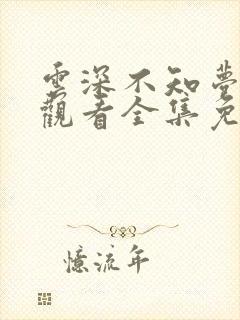 雲深不知夢
觀看全集免
憶流年